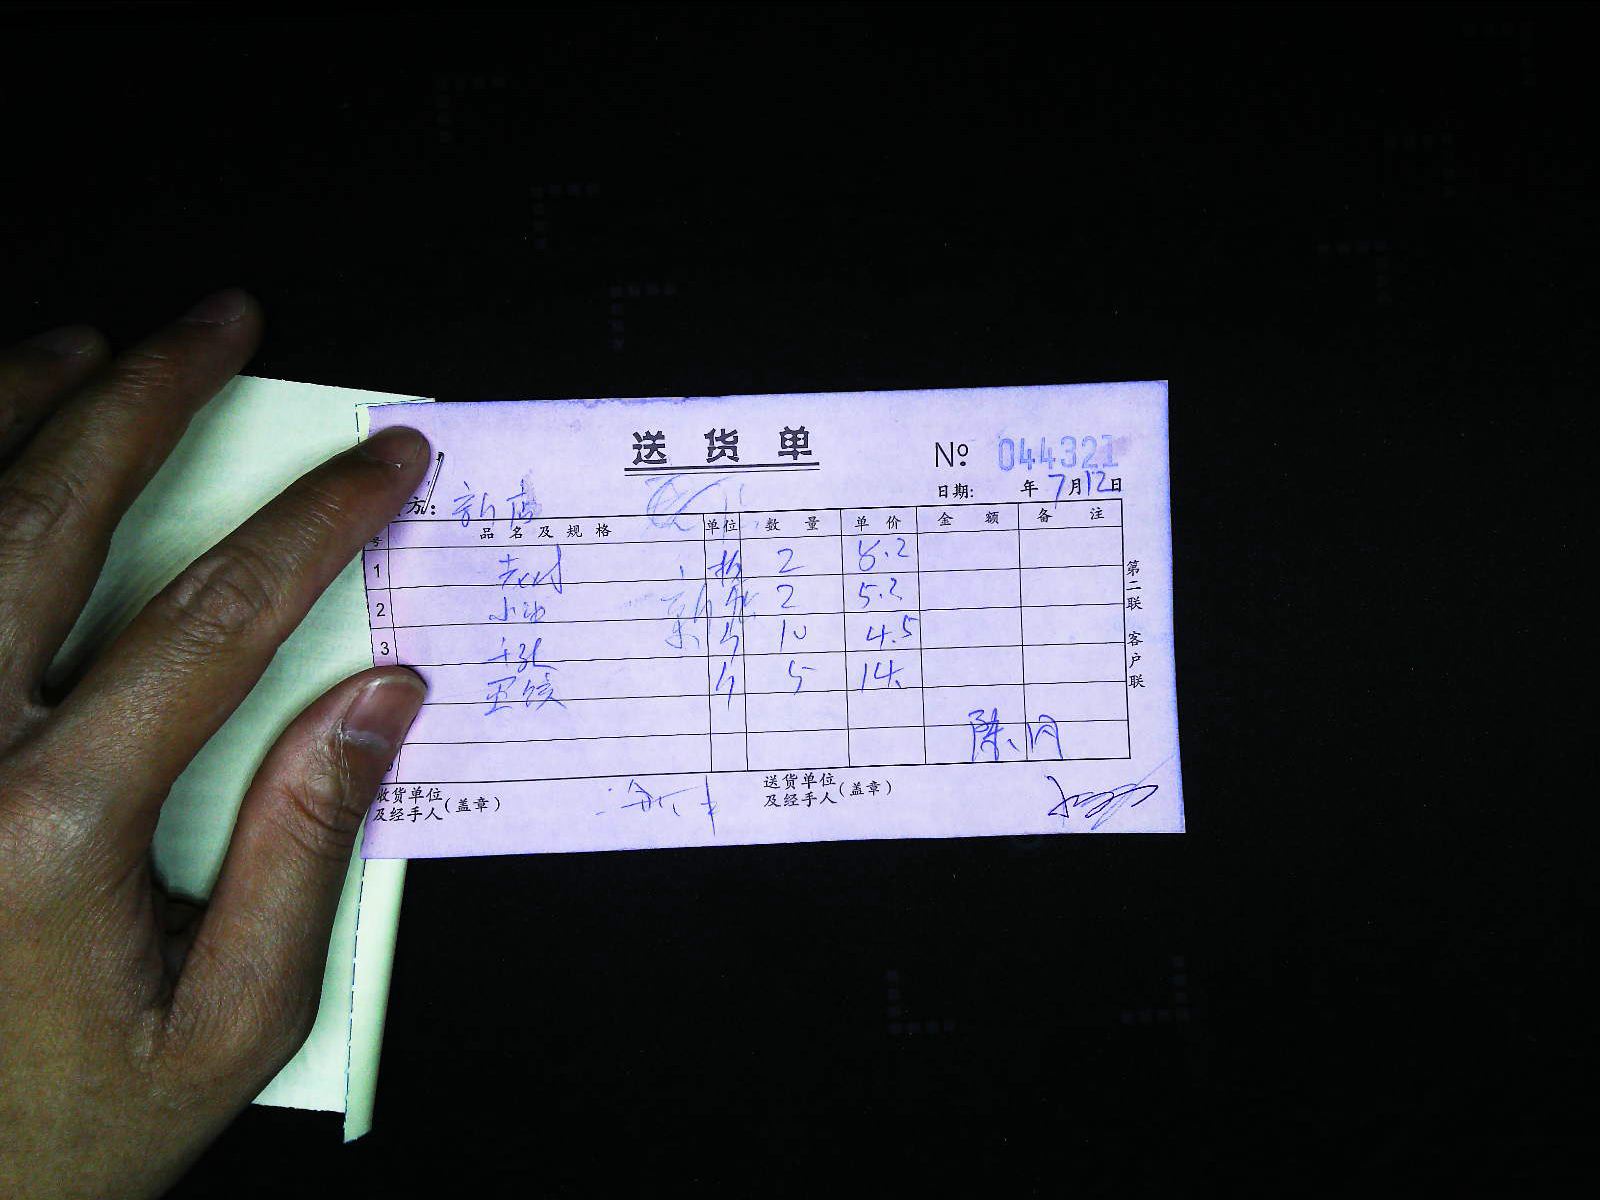 送货单
№ 044321
方: 新店
日期: 年 7月12日
号 品名及规格 单位 数量 单价 金额 备注
1 板 2 8.2
2 小油 2 5.2
3 千张 斤 10 4.5
斤 5 14.
陈、月
收货单位及经手人(盖章)
送货单位及经手人(盖章)
第二联 客户联